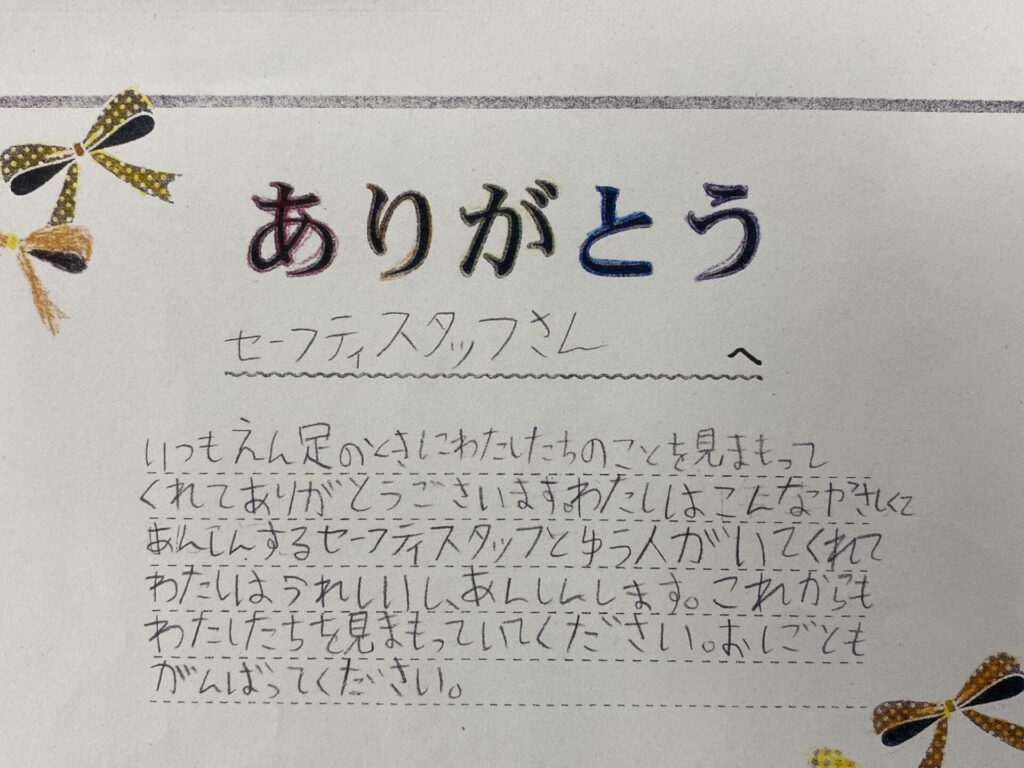 ありがとう
セーフティスタッフさん へ
いつもえん足のときにわたしたちのことを見まもって
くれてありがとうございます。わたしはこんなにやさしくて
あんしんするセーフティスタッフとゆう人がいてくれて
わたしはうれしいし、あんしんします。これからも
わたしたちを見まもっていてください。おしごとも
がんばってください。